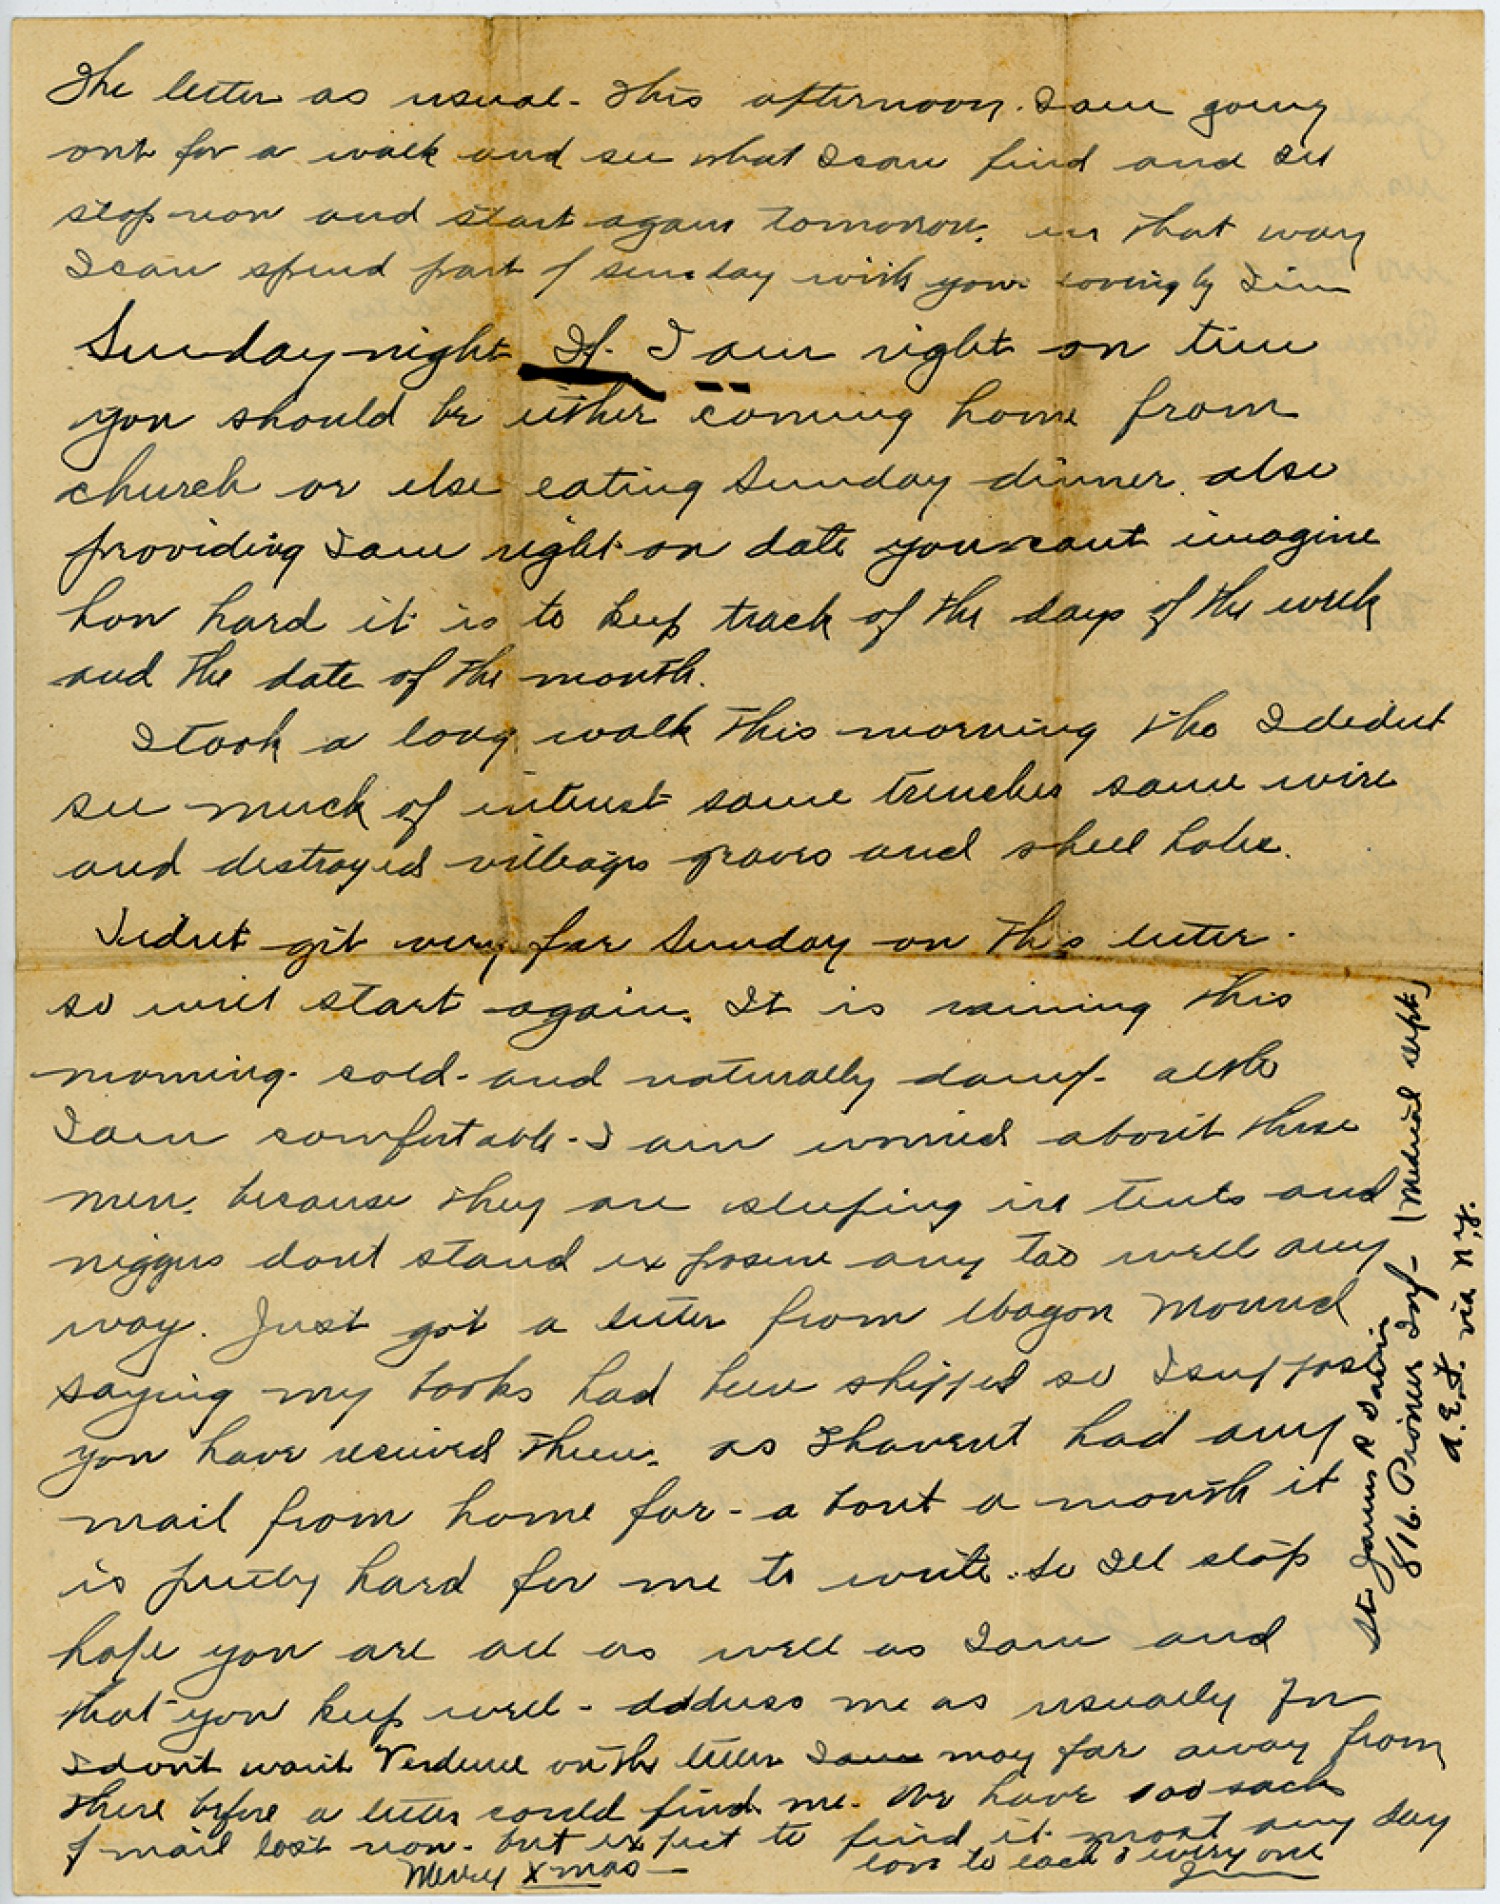 The letter as usual - This afternoon. I am going
out for a walk and see what I can find and Ill
stop now and start again tomorrow. in that way
I can spend part of sunday with you. Lovingly Jim
Sunday night If I am right on time
you should be either coming home from
church or else eating Sunday dinner. also
providing I am right on date you cant imagine
how hard it is to keep track of the days of the week
and the date of the month.
I took a long walk this morning tho I didnt
see much of interest some trenches some wire
and destroyed villages graves and shell holes.
I didnt git very far Sunday on this letter.
so will start again. It is raining this
morning - cold - and naturally damp - altho
I am comfortable - I am worried about these
men. because they are sleeping in tents and
niggers dont stand exposure any too well any
way. Just got a letter from Wagon Mound
saying my books had been shipped so I suppose
you have received them. as I havent had any
mail from home for - about a month it
is pretty hard for me to write. So Ill stop
hope you are all as well as I am and
that you keep well - address me as usually for
I dont want Verdun on the letter I am may far away from
there before a letter could find me. We have 100 sacks
of mail lost now - but expect to find it most any day
love to each & every one
Merry Xmas - Jim
Lt. James R.
816. Pioneer Inf - (Medical Dept)
A.E.F. via N.Y.